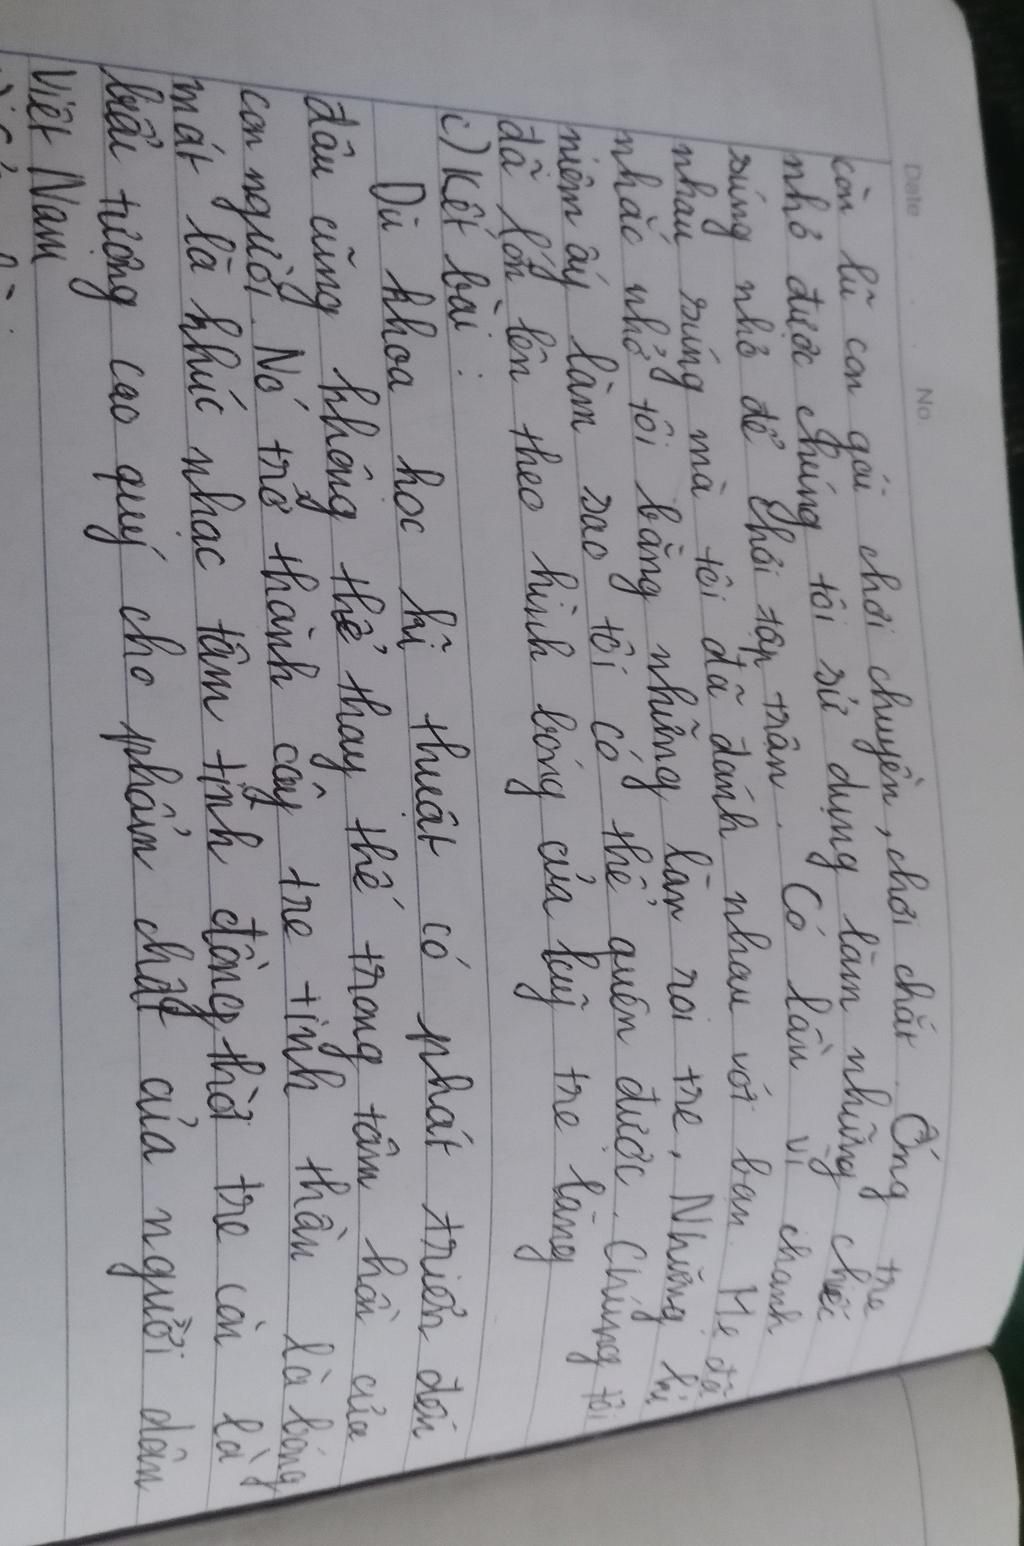 Date No.
còn lũ con gái chơi chuyền, chơi chắt. Ống tre
nhỏ được chúng tôi sử dụng làm những chiếc
súng nhỏ để chơi tập trận. Có lần vì tranh
nhau súng mà tôi đã đánh nhau với bạn. Mẹ đã
nhắc nhở tôi bằng những làn roi tre, Những kỉ
niệm ấy làm sao tôi có thể quên được. Chúng tôi
đã lớn lên theo hình bóng của luỹ tre làng
c) Kết bài:
Dù khoa học kĩ thuật có phát triển đến
đâu cũng không thể thay thế trong tâm hồn của
con người. Nó trở thành cây tre tinh thần là bóng
mát là khúc nhạc tâm tình đồng thời tre còn là
biểu tượng cao quý cho phẩm chất của người dân
Việt Nam